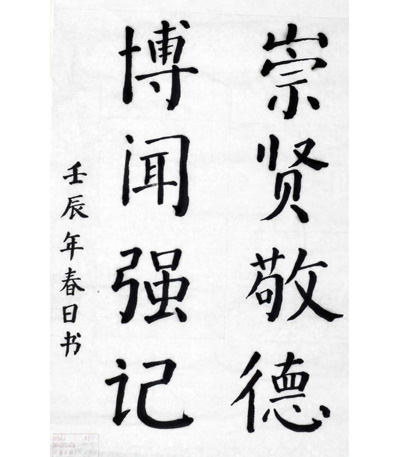 崇贤敬德
博闻强记
壬辰年春日书